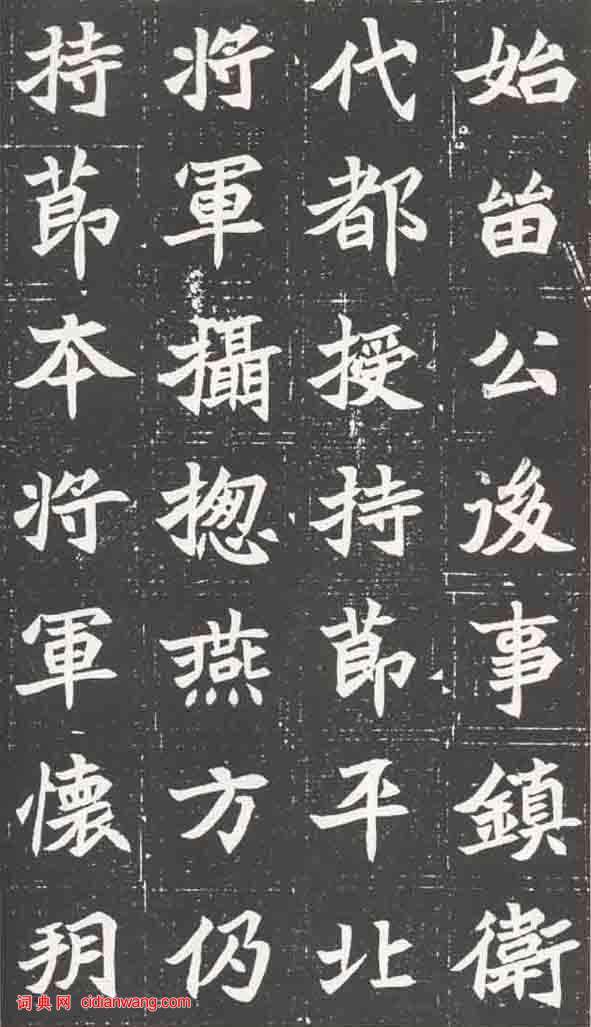 始留公後事鎮衛
代都授持節平北
將軍攝揔燕方仍
持節本將軍懷朔
词典网 cidianwang.com